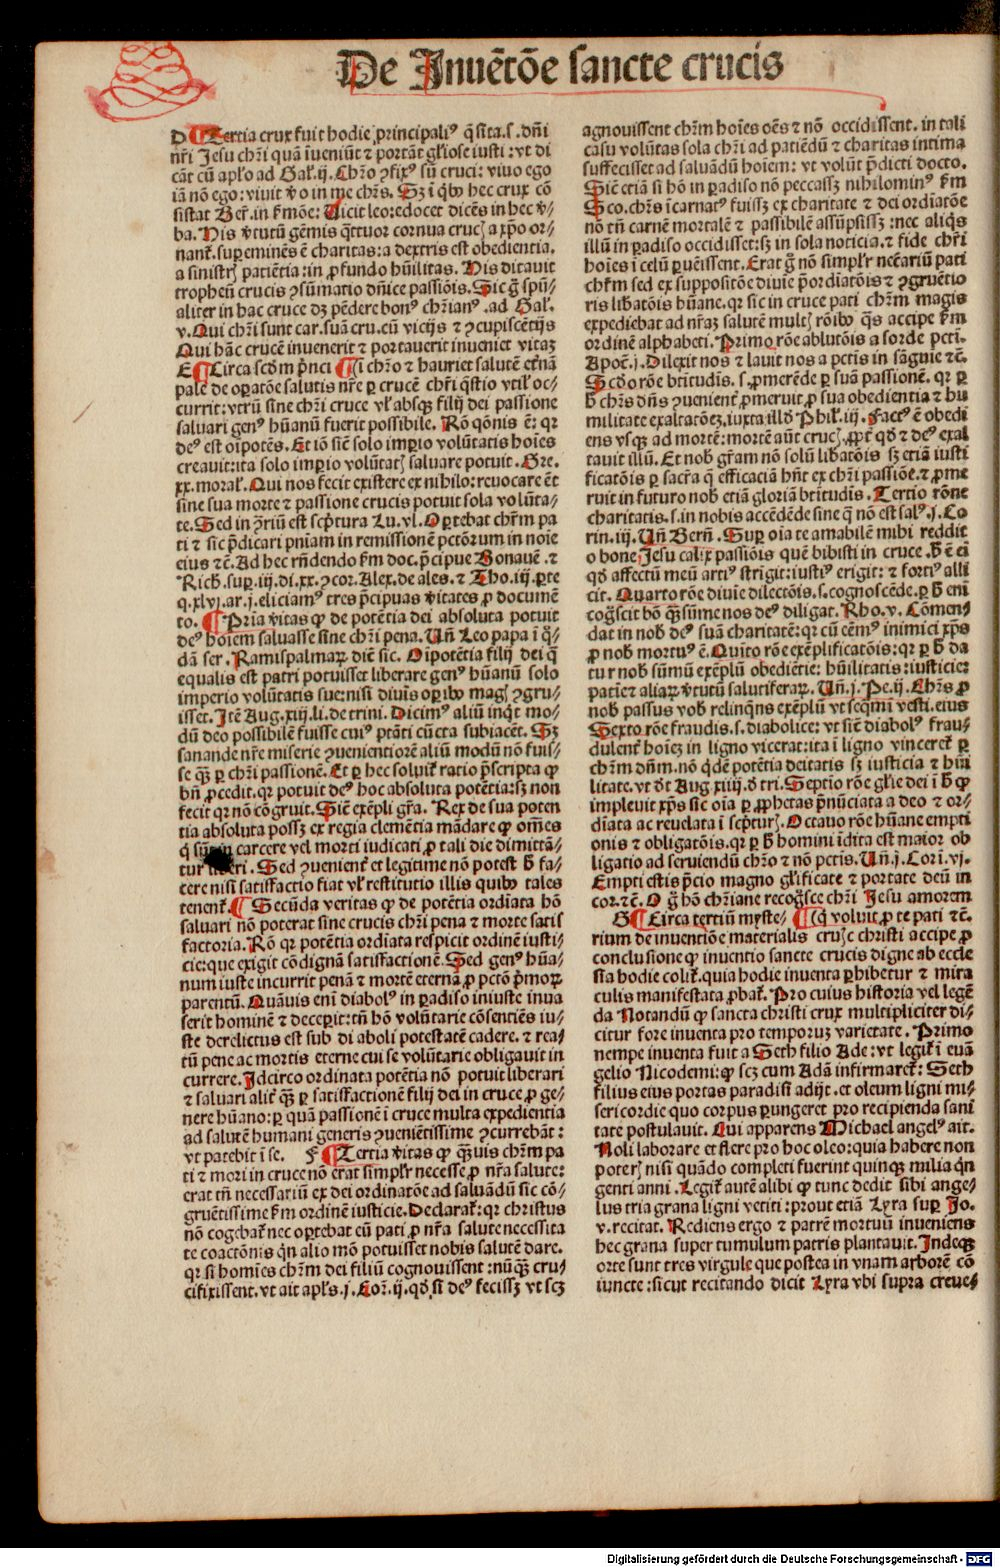 De Inuẽtõe sancte crucis
D ¶ Tertia crux fuit hodie principaliꝰ q̃sita.s.dñi
nr̃i Jesu chr̃i quã iueniũt ⁊ portãt gl̃iose iusti: vt di
cãt cũ apl̃o ad Gal̃.ij. Chr̃o ꝯfixꝰ sũ cruci: viuo ego
iã nõ ego: viuit v̾o in me chr̃s. Sꝫ ĩ qͥbꝰ hec crux cõ
sistat Ber̃. in ẜmõe: Uicit leo: edocet dicẽs in hec v̾⸗
ba. His v̾tutũ gẽmis q̃ttuor cornua crucꝭ a xp̃o or⸗
nant᷑. suꝑeminẽs ẽ charitas: a dextris est obedientia.
a sinistrꝭ patiẽtia: in ꝓfundo hũilitas. His ditauit
tropheũ crucis ꝯsũmatio dñice passiõis. Sic g̃ spũ⸗
aliter in hac cruce dꝫ pẽdere bonꝰ chr̃ianꝰ .ad Gal̃.
v. Qui chr̃i sunt car.suã cru.cũ vicijs ⁊ ꝯcupiscẽtijs
Qui hãc crucẽ inuenerit ⁊ portauerit inueniet vitaꝫ
E ¶ Circa scd̃m p̃nci ¶ ĩ chr̃o ⁊ hauriet salutẽ et̾nã
pale de oꝑatõe salutis nr̃e ꝑ crucẽ chr̃i q̃stio vtil̃ oc⸗
currit: vtrũ sine chr̃i cruce vl̃ absqꝫ filij dei passione
saluari genꝰ hũanũ fuerit possibile. Rõ q̃onis ẽ: qr
deꝰ est oĩpotẽs. Et iõ sic̃ solo imꝑio volũtatis hoĩes
creauit: ita solo imꝑio volũtatꝭ saluare potuit. Gre.
xx.moral̃. Qui nos fecit existere ex nihilo: reuocare ẽt
sine sua morte ⁊ passione crucis potuit sola volũta⸗
te. Sed in ꝯ̃riũ est scp̃tura Lu.vl̃. Oꝑtebat chr̃m pa
ti ⁊ sic p̃dicari pniam in remissionẽ pctõrum in noĩe
eius ⁊c̃. Ad hec rñdendo ẜm doc.p̃cipue Bonauẽ. ⁊
Rich.suꝑ.iij.di.xx.⁊cor. Alex.de ales. ⁊ Tho.iij.ꝑte
q.xlvj.ar.j. eliciamꝰ tres p̃cipuas v̾itates ꝓ documẽ
to. ¶ Pria v̾itas qꝙ de potẽtia dei absoluta potuit
deꝰ hoĩem saluasse sine chr̃i pena. Uñ Leo papa ĩ q̃⸗
dã ser. Ramispalmaꝝ diẽ sic. Oĩpotẽtia filij dei q̃
equalis est patri potuisset liberare genꝰ hũanũ solo
imperio volũtatis sue: nisi diuis̃ oꝑibꝰ magꝭ ꝯgru⸗
isset. Itẽ Aug.xiij.li.de trini. Dicimꝰ aliũ inq̃t mo⸗
dũ deo possibilẽ fuisse cuiꝰ ptãti cũcta subiacẽt. Sꝫ
sanande nr̃e miserie ꝯuenientiorẽ aliũ modũ nõ fuis⸗
se q̃ꝫ ꝑ chr̃i passionẽ. Et ꝑ hec soluit᷑ ratio p̃scripta ꝙ
bñ ꝓcedit. qr potuit deꝰ hoc absoluta potẽtia: sꝫ non
fecit qr nõ cõgruit. Sic̃ exẽpli gr̃a. Rex de sua poten
tia absoluta possꝫ ex regia clemẽtia mãdare ꝙ om̃es
q̃ sũt in carcere vel morti iudicati ꝓ tali die dimittã⸗
tur liberi. Sed ꝯuenient᷑ et legitime nõ potest h̃ fa⸗
cere nisi satisfactio fiat vl̃ restitutio illis quibꝰ tales
tenent᷑. ¶ Secũda veritas ꝙ de potẽtia ordiata hõ
saluari nõ poterat sine crucis chr̃i pena ⁊ morte satis
factoria. Rõ qr potẽtia ordiata respicit ordinẽ iusti⸗
cie: que exigit cõdignã satisfactionẽ. Sed genꝰ hũa⸗
num iuste incurrit penã ⁊ mortẽ eternã ꝓ pctõ p̃moꝝ
parentũ. Quãuis eni diabolꝰ in ꝑadiso iniuste inua
serit hominẽ ⁊ deceperit: tñ hõ volũtarie cõsentiẽs iu⸗
ste derelictus est sub di aboli potestatẽ cadere. ⁊ rea⸗
tũ pene ac mortis eterne cui se volũtarie obligauit in
currere. Idcirco ordinata potẽtia nõ potuit liberari
⁊ saluari alit᷑ q̃ꝫ ꝑ satisfactionẽ filij dei in cruce ꝓ ge⸗
nere hũano: ꝑ quã passionẽ ĩ cruce multa expedientia
ad salutẽ humani generis ꝯueniẽtissime ꝯcurrebãt:
vt patebit ĩ se. F ¶ Tertia v̾itas ꝙ q̃ꝫuis chr̃m pa
ti ⁊ mori in cruce nõ erat simpl̃r necesse ꝓ nr̃a salute:
erat tñ necessariũ ex dei ordinatõe ad saluãdũ sic cõ⸗
gruẽtissime ẜm ordinẽ iusticie. Declarat᷑: qr christus
nõ cogebat᷑ nec oꝑtebat eũ pati ꝓ nr̃a salute necessita
te coactõnis q̃n alio mõ potuisset nobis salutẽ dare.
qr si homĩes chr̃m dei filiũ cognouissent: nũq̃ꝫ cru⸗
cifixissent. vt ait apl̃s.j. Cor̃.ij. qđ si deꝰ fecissꝫ vt scꝫ
agnouissent chr̃m hoĩes oẽs ⁊ nõ occidissent. in tali
casu volũtas sola chr̃i ad patiẽdũ ⁊ charitas intima
suffecisset ad saluãdũ hoĩem: vt volũt p̃dicti docto.
Sic̃ etiã si hõ in ꝑadiso nõ peccassꝫ nihilominꝰ ẜm
Sco. chr̃s ĩcarnatꝰ fuissꝫ ex charitate ⁊ dei ordiatõe
nõ tñ carnẽ mortalẽ ⁊ passibilẽ assũpsissꝫ: nec aliq̃s
illũ in ꝑadiso occidisset: sꝫ in sola noticia. ⁊ fide chr̃i
hoĩes ĩ celũ ꝑuẽissent. Erat g̃ nõ simpl̃r nec̃ariũ pati
chr̃m sed ex suppositõe diuie p̃ordiatõis ⁊ ꝯgruẽtio
ris libatõis hũane. qr sic in cruce pati chr̃m magis
expediebat ad nr̃aꝫ salutẽ multꝭ rõibꝰ q̃s accipe ẜm
ordinẽ alphabeti. Primo rõe ablutõis a sorde pctĩ.
Apoc̃.j. Dilexit nos ⁊ lauit nos a pctis in sãgnie ⁊c̃.
Scđo rõe btitudis̃. s. ꝓmerẽde ꝑ suã passionẽ. qr ꝑ
h̃ chr̃s dñs ꝯuenient᷑ ꝓmeruit ꝓ sua obedientia ⁊ hu
militate exaltatõeꝫ. iuxta illđ Phil̃.iij. Factꝰ ẽ obedi
ens vsqꝫ ad mortẽ: mortẽ aũt crucꝭ. ꝓpt̾ qđ ⁊ deꝰ exal
tauit illũ. Et nob̾ gr̃am nõ solũ libatõis sꝫ etiã iusti
ficatõis ꝑ sacr̃a q̃ efficaciã hñt ex chr̃i passiõe. ⁊ ꝓme
ruit in futuro nob̾ etiã gloriã btitudis. Tertio rõne
charitatis.s. in nobis accẽdẽde sine q̃ nõ est salꝰ.j. Co
rin.iij. Uñ Berñ. Suꝑ oĩa te amabilẽ mihi reddit
o bone Jesu calix passiõis quẽ bibisti in cruce. h̃ ẽ ei
qđ affectũ meũ artiꝰ strigit: iustiꝰ erigit: ⁊ fortiꝰ alli
cit. Quarto rõe diuie dilectõis.s. cognoscẽde. ꝑ h̃ eni
cog̾scit hõ q̃ꝫsũme nos deꝰ diligat. Rho.v. Cõmen⸗
dat in nob̾ deꝰ suã charitatẽ: qr cũ cẽmꝰ inimici xp̃s
ꝓ nob̾ mortuꝰ ẽ. Quĩto rõe exẽplificatõis: qr ꝑ h̃ da
tur nob̾ sũmũ exẽplũ obediẽtie: hũilitatis: iusticie:
patiẽẽ aliaꝝ v̾tutũ salutiferaꝝ. Uñ.j. Pe.ij. Chr̃s ꝓ
nob̾ passus vob̾ relinqñs exẽplũ vt seq̃mi vesti. eius
Sexto rõe fraudis.s. diabolice: vt sic̃ diabolꝰ frau⸗
dulent᷑ hoĩeꝫ in ligno vicerat: ita ĩ ligno vinceret᷑ ꝑ
chr̃m dñm. nõ q̃dẽ potẽtia deitatis sꝫ iusticia ⁊ hũi
litate. vt dt̾ Aug xiiij.đ tri. Septio rõe gl̃ie dei ĩ h̃ ꝙ
impleuit xp̃s sic oĩa ꝑ ꝓphetas p̃nũciata a deo ⁊ or⸗
dĩata ac reuelata ĩ scp̃tur̃. Octauo rõe hũane empti
onis ⁊ obligatõis. qr ꝑ h̃ homini ĩdita est maior ob
ligatio ad seruiendũ chr̃o ⁊ nõ pctis. Uñ.j. Cori.vj.
Empti estis p̃cio magno gl̃ificate ⁊ portate deũ in
cor. ⁊c̃. O g̃ hõ chr̃iane recog̾sce chr̃i Jesu amorem
G ¶ Circa tertiũ myste⸗ ¶ q̃ voluit ꝓ te pati ⁊c̃.
rium de inuentiõe materialis crucꝭ christi accipe ꝓ
conclusione ꝙ inuentio sancte crucis digne ab eccle
sia hodie colit᷑. quia hodie inuenta ꝑhibetur ⁊ mira
culis manifestata ꝓbat᷑. Pro cuius historia vel legẽ
da Notandũ ꝙ sancta christi crux multipliciter di⸗
citur fore inuenta pro temporuꝫ varietate. Primo
nempe inuenta fuit a Seth filio Ade: vt legit᷑ ĩ euã
gelio Nicodemi: ꝙ scꝫ cum Adã infirmaret᷑: Seth
filius eius portas paradisi adijt. et oleum ligni mi⸗
sericordie quo corpus ꝑungeret pro recipienda sani
tate postulauit. Cui apparens Michael angelꝰ ait.
Nolꝭ laborare et flere pro hoc oleo: quia habere non
poterꝭ nisi quãdo completi fuerint quinqꝫ milia q̃n
genti anni. Legit᷑ autẽ alibi ꝙ tunc dedit sibi ange⸗
lus tria grana ligni vetiti: prout etiã Lyra suꝑ Jo.
v. recitat. Rediens ergo ⁊ patrẽ mortuũ inueniens
hec grana super tumulum patris plantauit. Indeqꝫ
orte sunt tres virgule que postea in vnam arborẽ cõ
iuncte: sicut recitando dicit Lyra vbi supra creue⸗
Digitalisierung gefördert durch die Deutsche Forschungsgemeinschaft - DFG